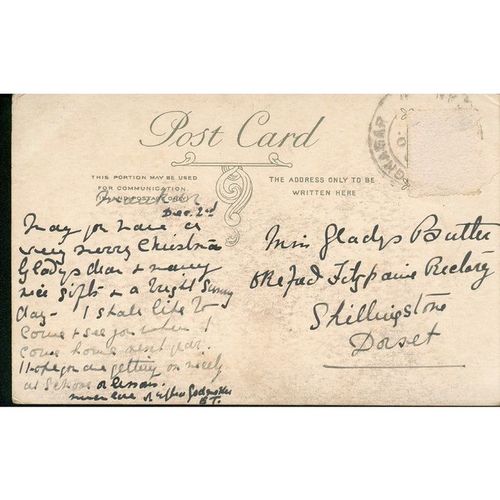 Post Card
THIS PORTION MAY BE USED
FOR COMMUNICATION
THE ADDRESS ONLY TO BE
WRITTEN HERE
Dec. 2nd
May you have a
very merry Christmas
Gladys dear & many
nice gifts & a bright Sunny
day - I shall like to
come & see you when I
come home next year.
I hope you are getting on nicely
at School or lessons.
much love Godmother
B.T.
Miss Gladys Butler
Okeford Fitzpaine Rectory
Shillingstone
Dorset